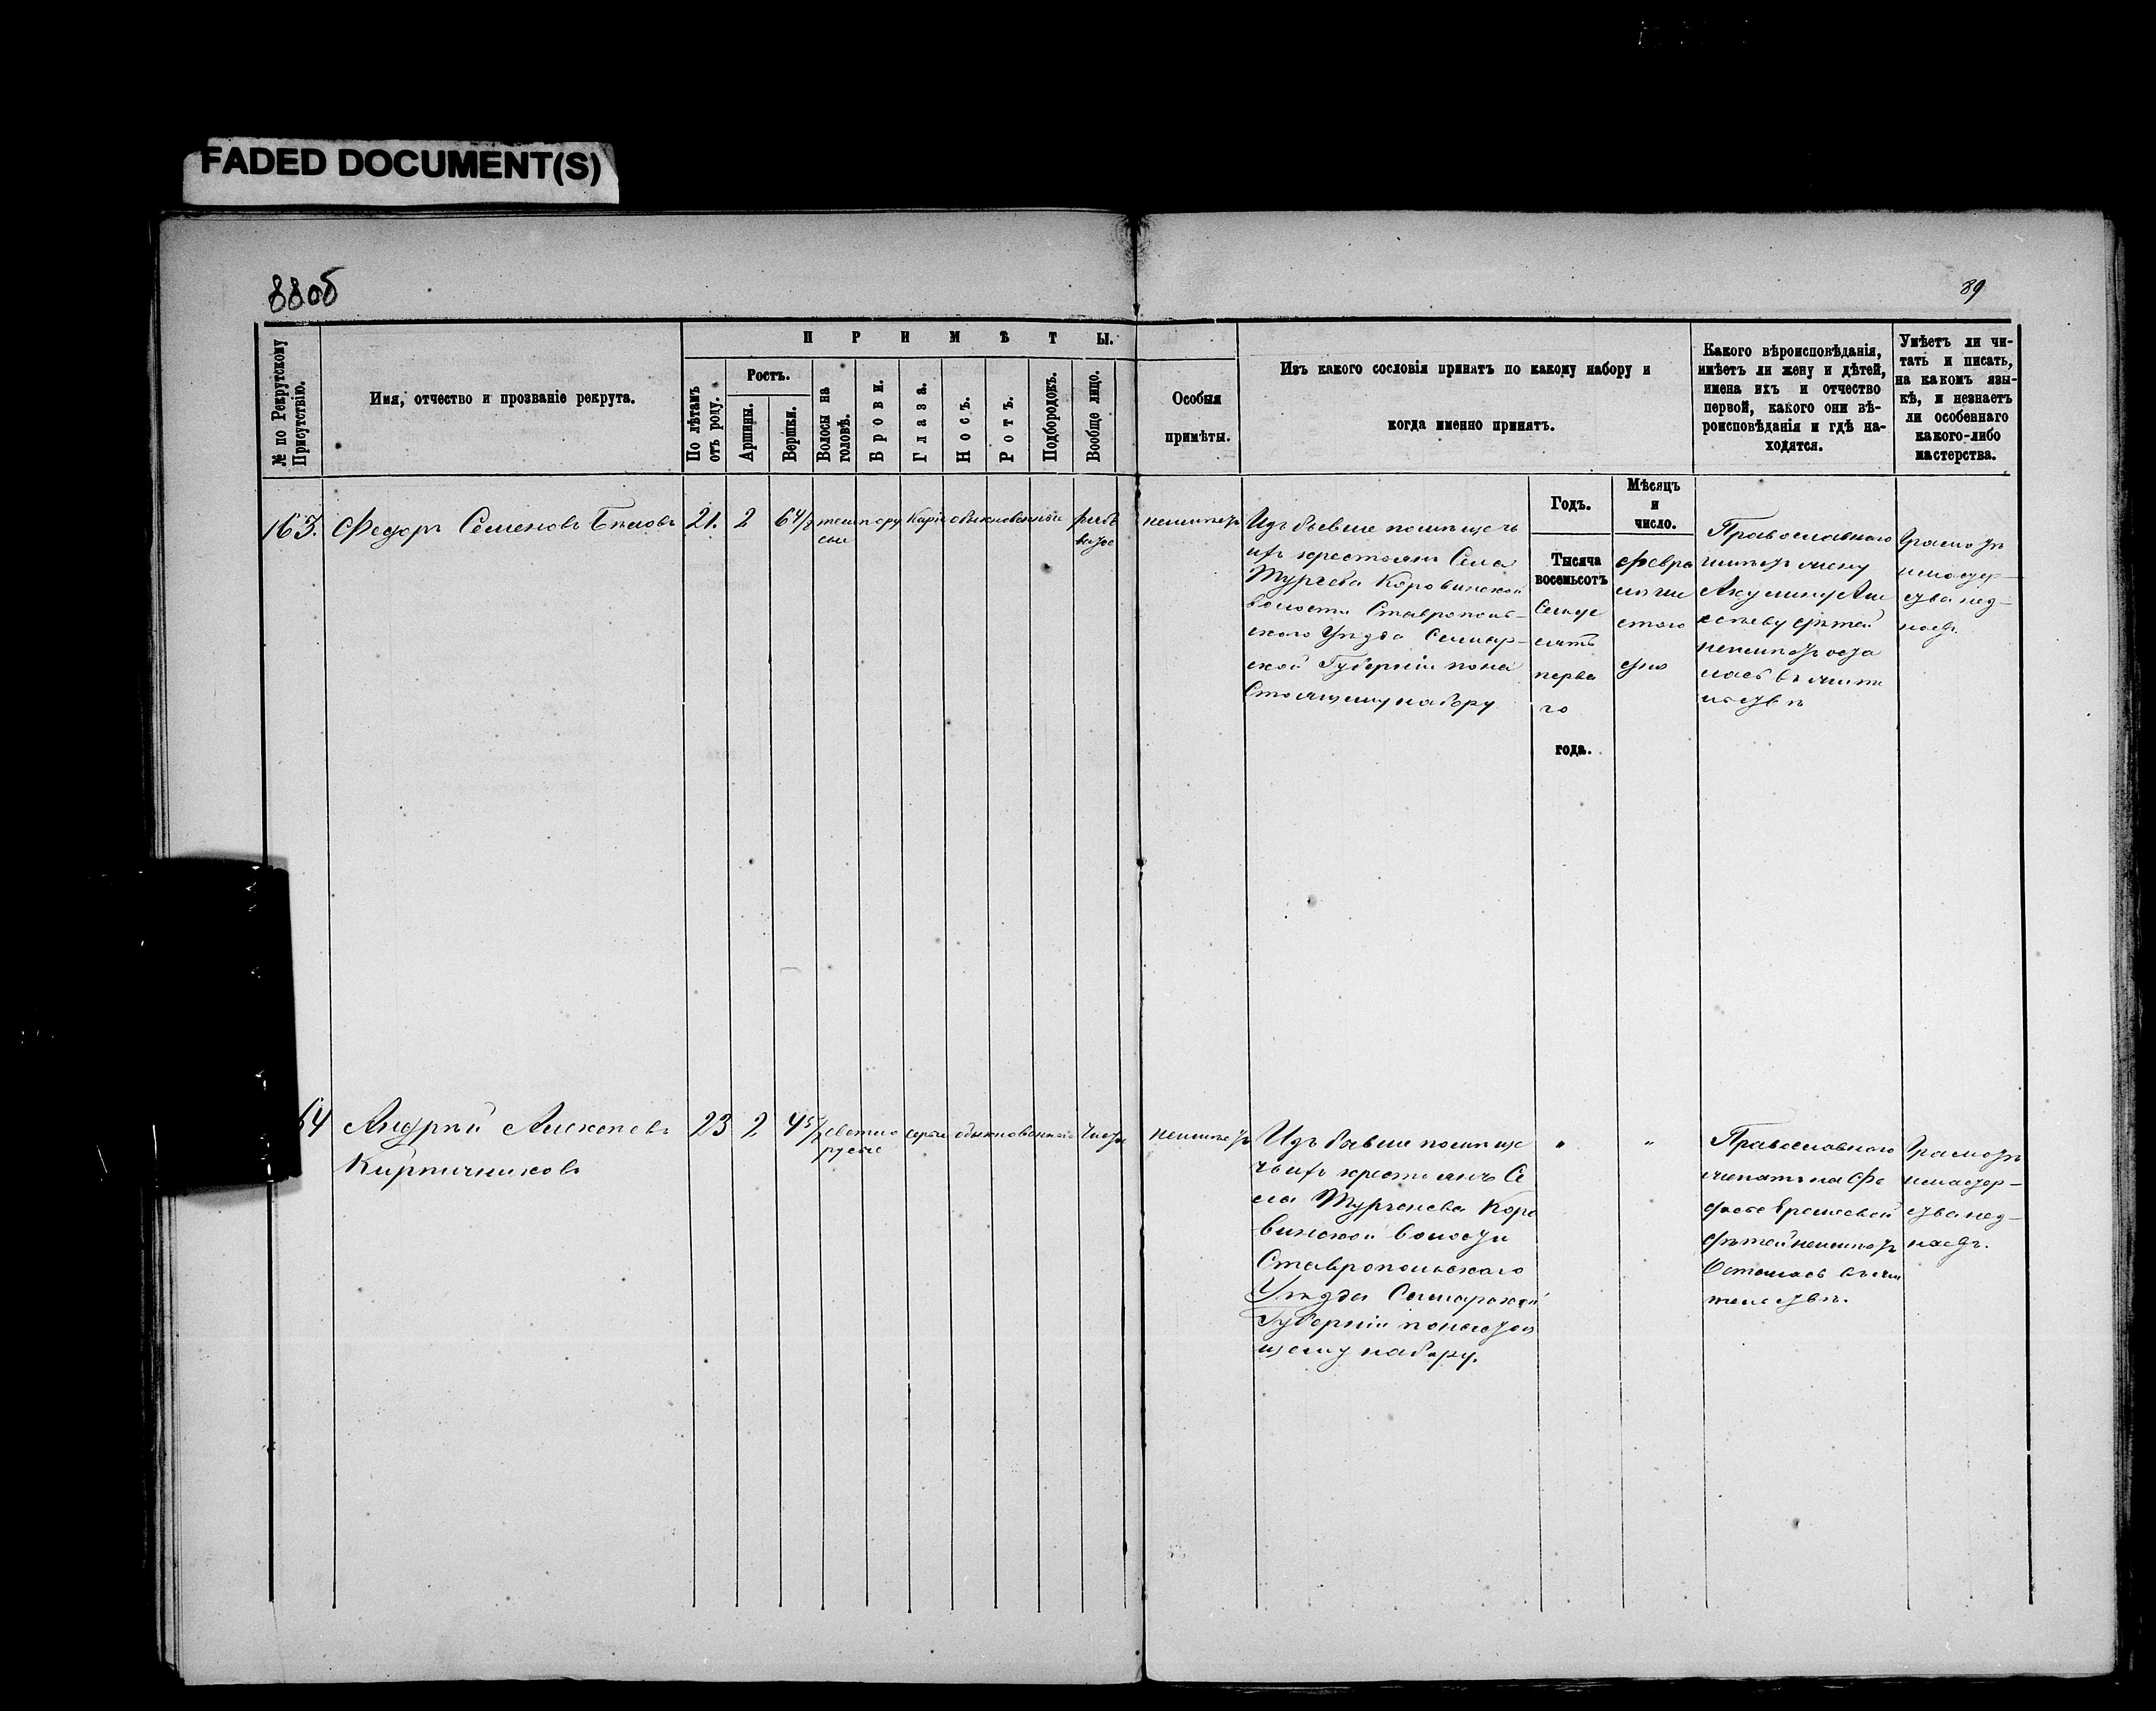 FADED DOCUMENT(S)
88об
89
№ по Рекрутскому
Присутствію.
Имя, отчество и прозваніе рекрута.
ПРИМѢТЫ.
По лѣтамъ
отъ роду.
Ростъ.
Аршины.
Вершки.
Волосы на
головѣ.
Брови.
Глаза.
Носъ.
Ротъ.
Подбородокъ.
Вообще лицо.
Особыя
примѣты.
Изъ какого сословія принятъ по какому набору и
когда именно принятъ.
Какого вѣроисповѣданія,
имѣетъ ли жену и дѣтей,
имена ихъ и отчество
первой, какого они вѣ-
роисповѣданія и гдѣ на-
ходятся.
Умѣетъ ли чи-
тать и писать,
на какомъ язы-
кѣ, и незнаетъ
ли особеннаго
какого-либо
мастерства.
163.
Федоръ Семеновъ Бѣловъ
21.
2
6 4/8
темнору
сые
Каріе
обыкновенный
рябо
ватое
неимѣетъ
Изъ бывше помѣщечь
ихъ крестьянъ Села
Тургева Коровинской
волости Ставрополь-
скаго Уѣзда Самар-
ской Губерніи пона
Стоящему набору
Годъ.
Тысяча
восемьсотъ
Семьде
сятъ
перва
го
года.
Мѣсяцъ
и
число.
Февра
ля
дня
Православнаго
имѣетъ жену
Акулину Але
ксѣеву дѣтей
неимѣетъ оста
лась въ жите
льствѣ
Грамотѣ
имастер-
ства нед-
наетъ.
64
Андрей Алексѣевъ
Кирпичниковъ
23
2
4 5/8
светло
русые
серые
обыкновенный
Чистое
неимѣетъ
Изъ бывше помѣще
чьихъ крестьянъ Се
ла Тургенева Коро
винской волости
Ставропольскаго
Уѣзда Самарской
Губерніи понастоя
щему набору.
"
"
Православнаго
женатъ на Фе
досье Еремеевой
дѣтей неимѣетъ
Осталась въ жи
тельствѣ.
Грамотѣ
имастер-
ства нед-
наетъ.